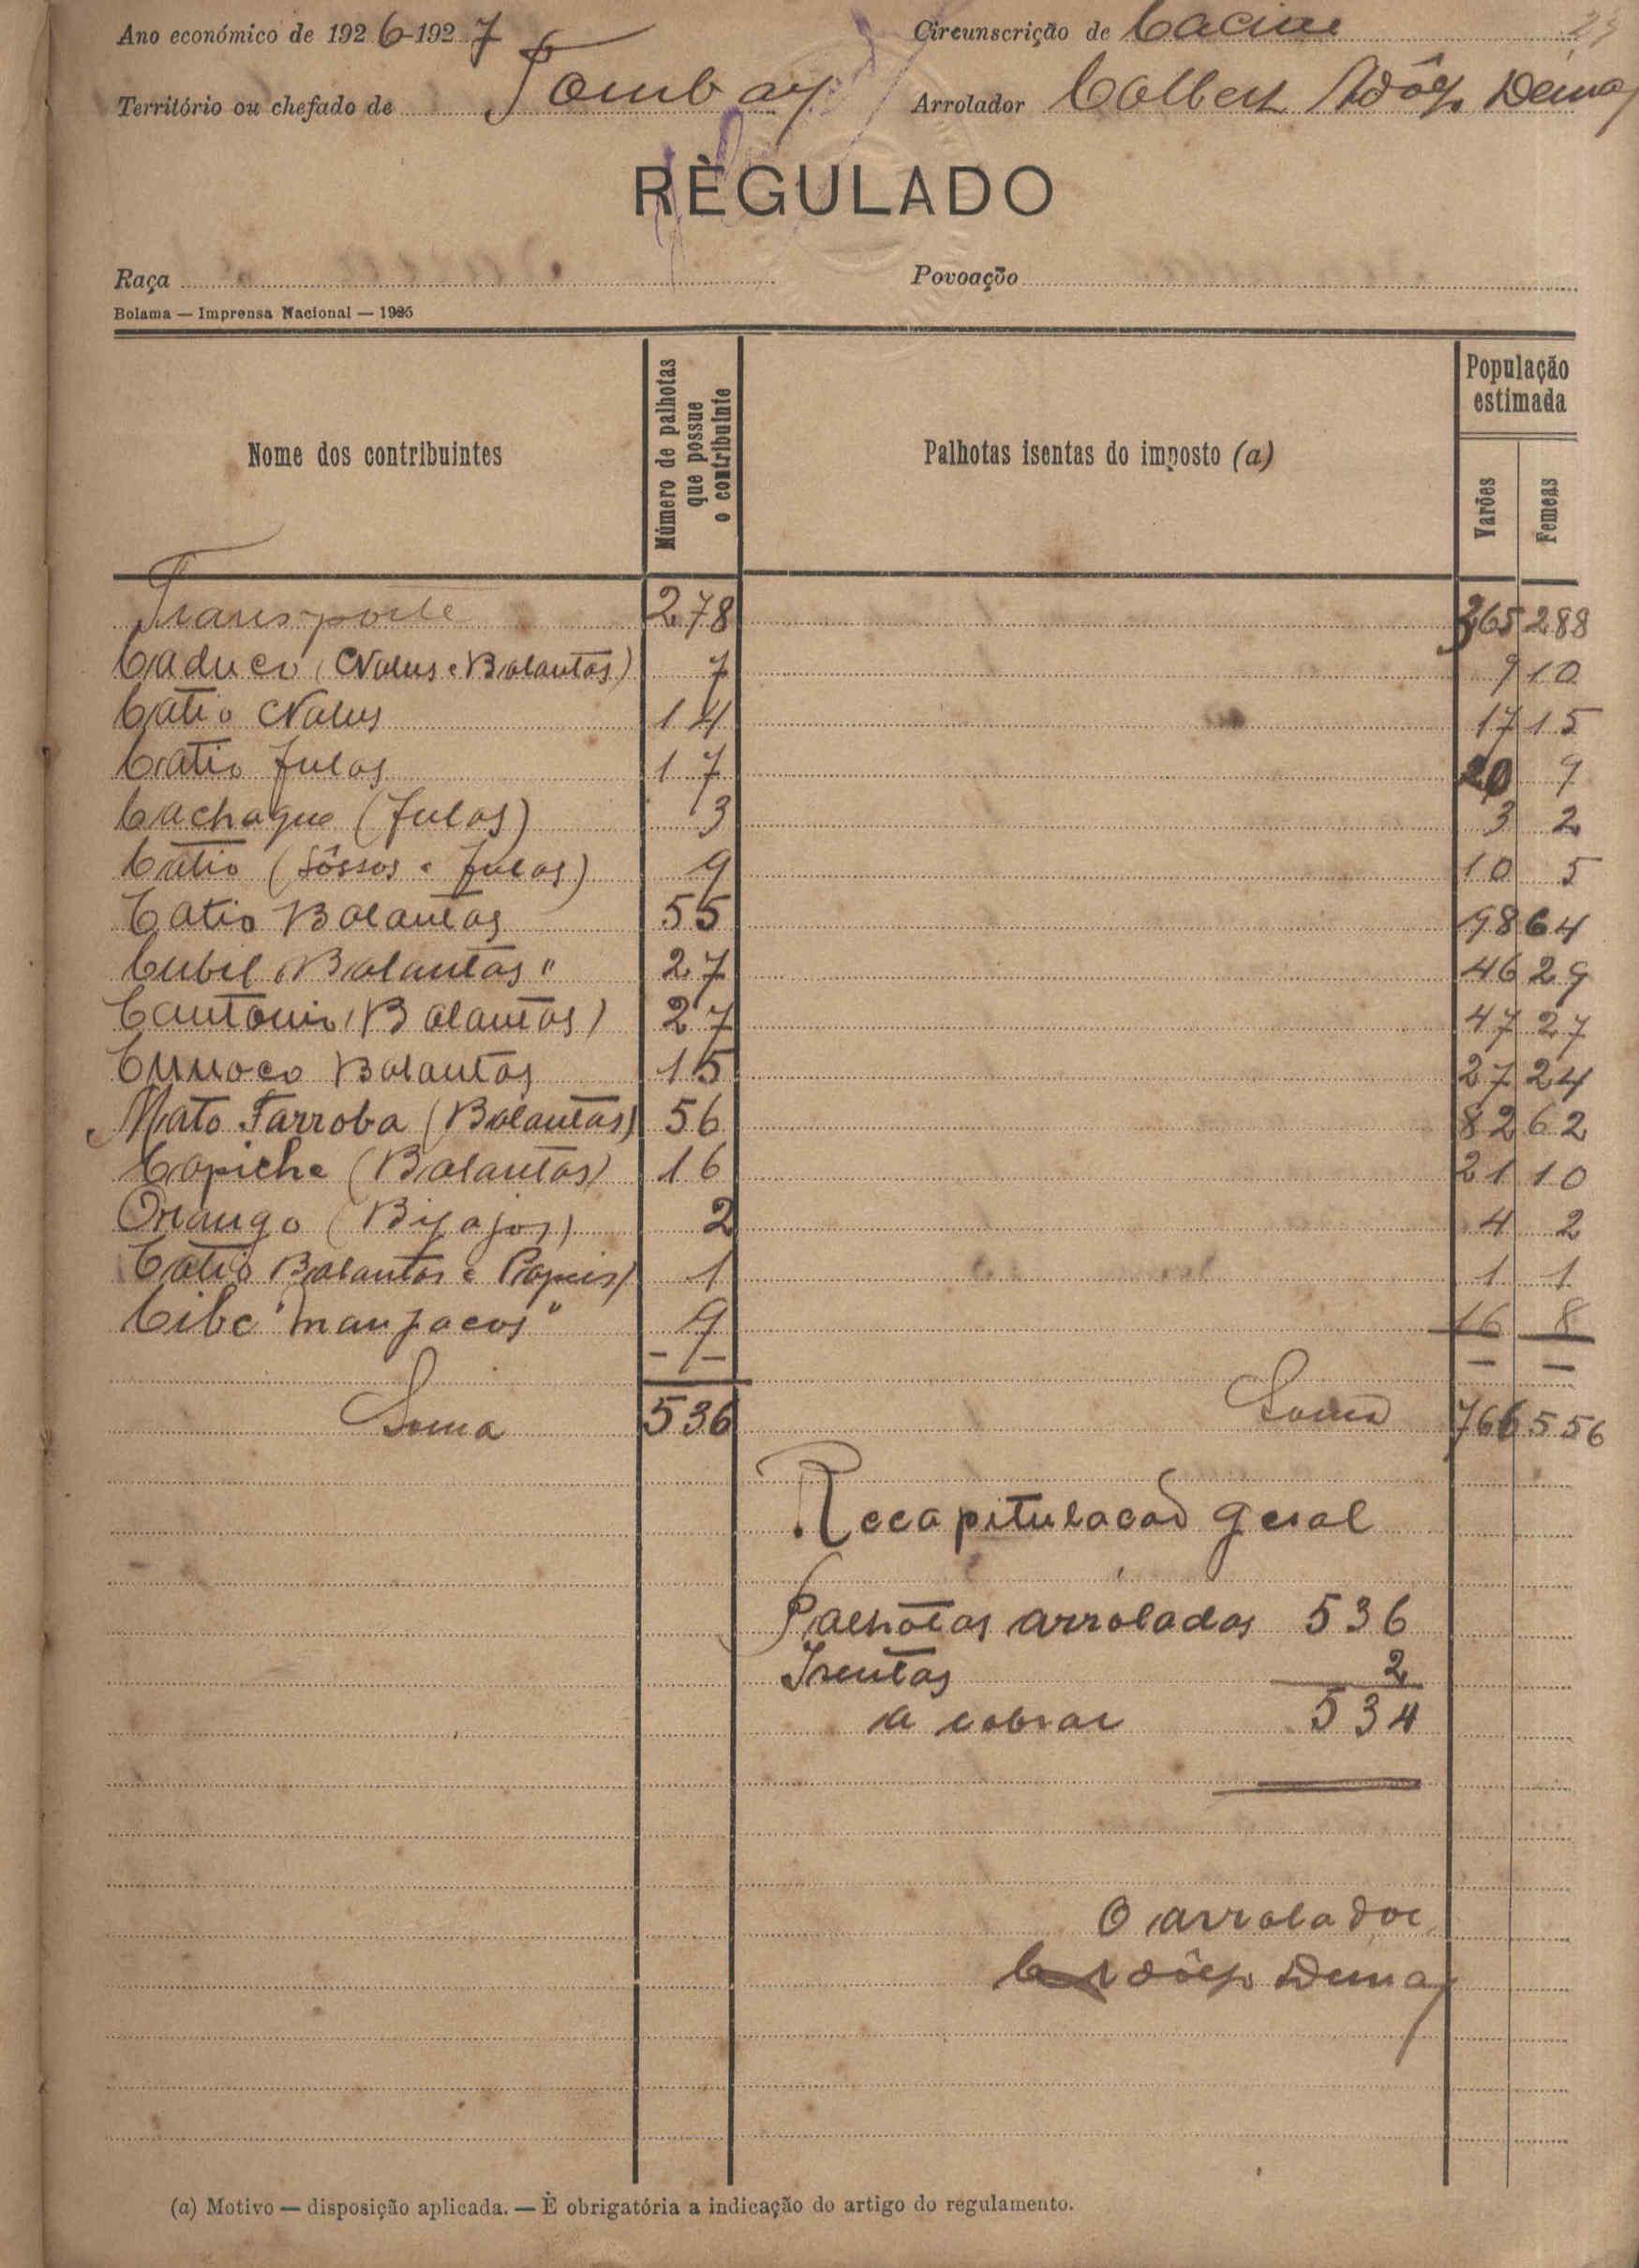 Ano económico de 1926-1927 Circunscrição de Cacine
23
Território ou chefado de Tombaly Arrolador Colbert Adôlp Demay
RÈGULADO
Raça Povoação
Bolama — Imprensa Nacional — 1925
Nome dos contribuintes
Número de palhotas que possue o contribuinte
Palhotas isentas do imposto (a)
População estimada
Varões
Femeas
Transporte 278 365 288
Caduco (Nalus e Balantas) 7 9 10
Catio Nalus 14 17 15
Catio Fulas 17 20 9
Cachaque (Fulas) 3 3 2
Catio (Sôssos e Fulas) 9 10 5
Catio Balantas 55 98 64
Cubil Balantas " 27 46 29
Cantonio (Balantas) 27 47 27
Cunoco Balantas 15 27 24
Mato Farroba (Balantas) 56 82 62
Capiche (Balantas) 16 21 10
Orango (Bijajos) 2 4 2
Catio Balantas e Papeis) 1 1 1
Cibe "Manjacos" 9 16 8
Soma 536 Soma 766 556
Recapitulacaõ geral
Palhotas arroladas 536
Isentas 2
a cobrar 534
O arrolador
Adôlp Demay
(a) Motivo — disposição aplicada. — È obrigatória a indicação do artigo do regulamento.